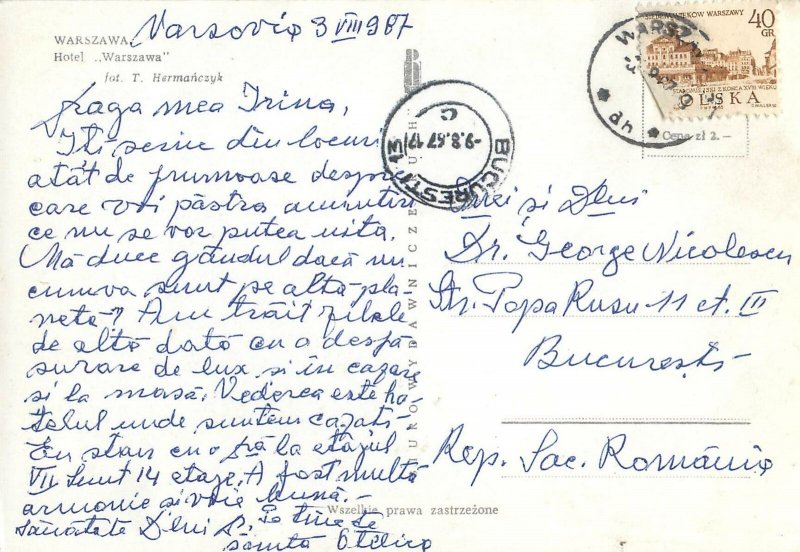 Varsovia 3 VIII 967
WARSZAWA
Hotel „Warszawa”
fot. T. Hermańczyk
Draga mea Irina,
Iti scriu din locuri
atât de frumoase despre
care voi păstra amintiri
ce nu se vor putea uita.
Mă duce gândul dacă nu
cumva sunt pe altă pla-
netă? Am trăit zilele
de altă dată cu o desfă
surare de lux si în cazare
si la masă. Vederea este ho-
telul unde suntem cazati-
Eu stau cu la etajul
VII. Sunt 14 etaje. A fost multă
armonie si voie bună.-
Sănătate Dlui Dr. Pe tine te
săruta Otilia
BIURO WYDAWNICZE RUCH
Wszelkie prawa zastrzeżone
BUCURESTI 13
-9.8.67 17
C
WARSZAWA
SIEDEM WIEKÓW WARSZAWY
40
GR
STARE MIEJSKI Z KOŃCA XVIII WIEKU
POLSKA
Cena zł 2.—
Dnei și Dlui
Dr. George Nicolescu
Str. Popa Rusu 11 et. III
București
Rep. Soc. România